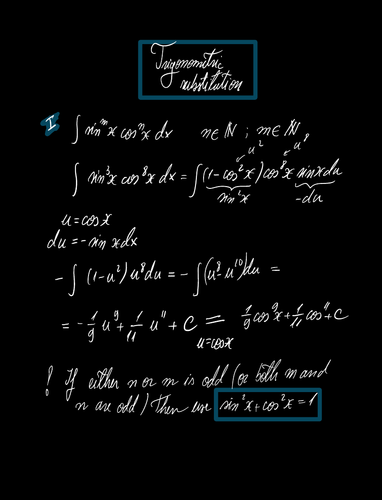 Trigonometric
substitution
I ∫ sin^m x cos^n x dx n∈ℕ ; m∈ℕ
u² u⁸
∫ sin³x cos⁸x dx = ∫(1-cos²x) cos⁸x sinx dx
sin²x -du
u=cosx
du=-sin x dx
-∫ (1-u²) u⁸ du = -∫(u⁸-u¹⁰)du =
= -1/9 u⁹ + 1/11 u¹¹ + C = 1/9 cos⁹x + 1/11 cos¹¹ + C
u=cosx
! If either n or m is odd (or both m and
n are odd) then use sin²x + cos²x = 1